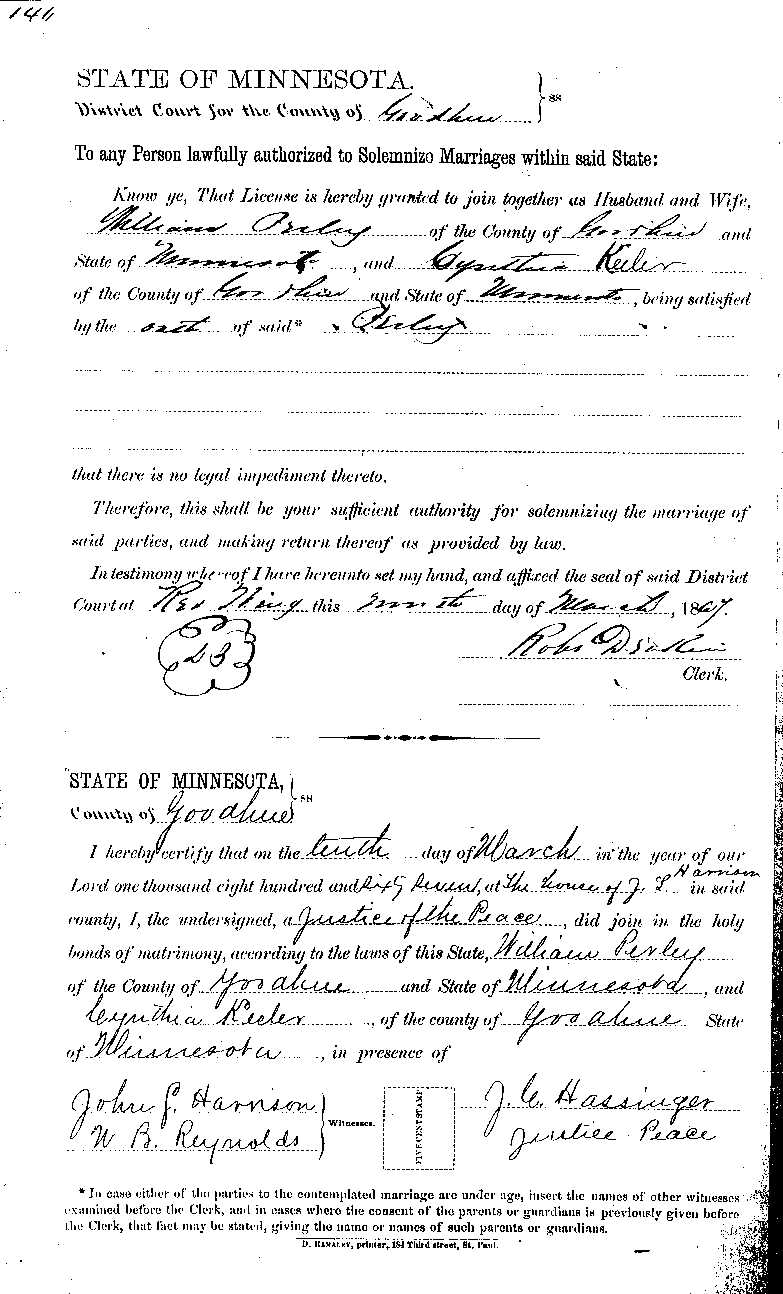 146
STATE OF MINNESOTA.
District Court for the County of Goodhue } ss
To any Person lawfully authorized to Solemnize Marriages within said State:
Know ye, That License is hereby granted to join together as Husband and Wife,
William Perley of the County of Goodhue and
State of Minnesota, and Cynthia Keeler
of the County of Goodhue and State of Minnesota, being satisfied
by the oath of said* Perley
that there is no legal impediment thereto.
Therefore, this shall be your sufficient authority for solemnizing the marriage of
said parties, and making return thereof as provided by law.
In testimony whereof I have hereunto set my hand, and affixed the seal of said District
Court at Red Wing this ninth day of March, 1867.
Clerk.
STATE OF MINNESOTA, } ss
County of Goodhue
I hereby certify that on the tenth day of March in the year of our
Harrison
Lord one thousand eight hundred and Sixty Seven, at The house of J. L in said
county, I, the undersigned, a Justice of the Peace, did join in the holy
bonds of matrimony, according to the laws of this State, William Perley
of the County of Goodhue and State of Minnesota, and
Cynthia Keeler, of the county of Goodhue State
of Minnesota, in presence of
John L. Harrison J. C. Hassinger
W B. Reynolds } Witnesses. FIVE CENT STAMP Justice Peace
* In case either of the parties to the contemplated marriage are under age, insert the names of other witnesses
examined before the Clerk, and in cases where the consent of the parents or guardians is previously given before
the Clerk, that fact may be stated, giving the name or names of such parents or guardians.
D. RAMALEY, printer, 184 Third street, St. Paul.